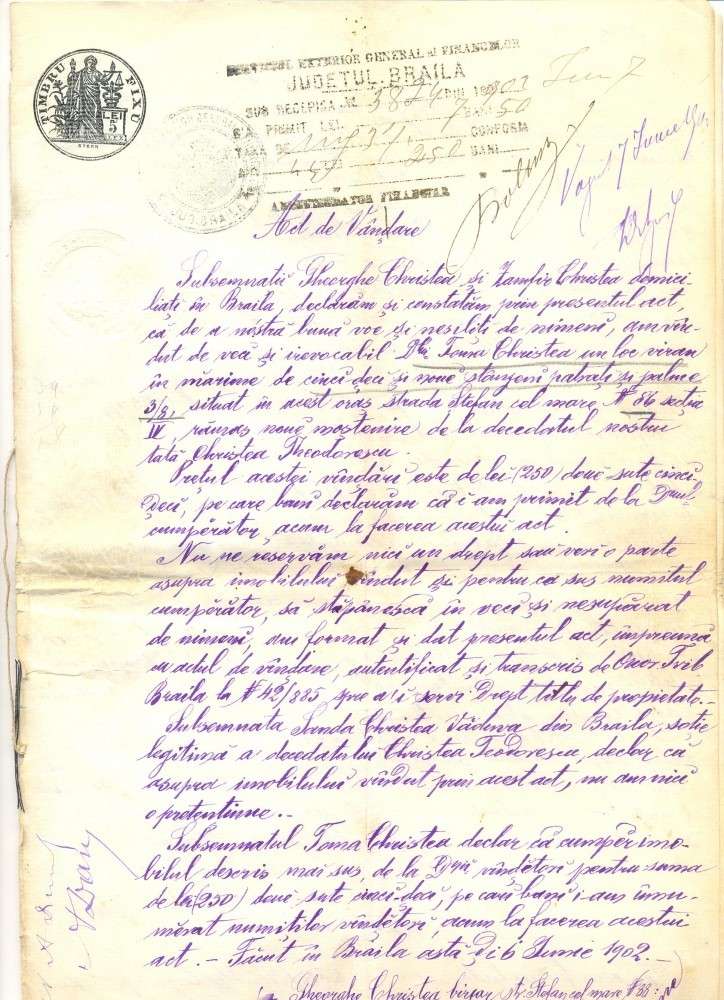 TIMBRU FIXU
LEI 5
STERN
SERVICIUL EXTERIOR GENERAL al FINANCELOR
JUDETUL BRAILA
SUB RECEPISA №
S'A PRIMIT LEI 7 BANI 50
TAXA DE CONFORM
250 BANI
ADMINISTRATOR FINANCIAR
7 Iunie
Act de Vândare
Subsemnatii Gheorghe Christea și Zamfir Christea domici-
liați în Braila, declarăm și constatăm prin presentul act,
că de a nostră bună voe și nesiliti de nimeni, am vîn-
dut de veci și irevocabil Dlui Toma Christea un loc viran
în mărime de cinci deci și noue stânjeni patrati și palme
3/8, situat în acest oraș strada Ștefan cel mare № 86 secția
IV, rămas nouă moștenire de la decedatul nostru
tată Christea Theodorescu.
Prețul acestei vîndări este de lei (250) doue sute cinci
deci, pe care bani declarăm că i am primit de la Dnul
cumpărător, acum la facerea acestui act.
Nu ne reservăm nici un drept sau veri o parte
asupra imobilului vîndut și pentru ca sus numitul
cumpărător, să stăpânescă în veci și nesupărat
de nimeni, am format și dat presentul act, împreună
cu actul de vîndare, autentificat și transcris de Onor Trib
Braila la № 42/885 spre a'i servi drept titlu de propietate.-
Subsemnata Sanda Christea Văduva din Braila, soție
legitimă a decedatului Christea Teodorescu, declar că
asupra imobilului vîndut prin acest act, nu am nici
o pretentiune.-
Subsemnatul Toma Christea declar că cumpăr imo-
bilul descris mai sus, de la Dnii vîndetori pentru suma
de lei (250) doue sute cinci deci, pe cari bani i-am înnu-
mărat numiților vîndetori, acum la facerea acestui
act. - Făcut în Brăila astă Di 6 Iunie 1902.-
Gheorghe Christea birjar str. Ștefan cel mare № 88: